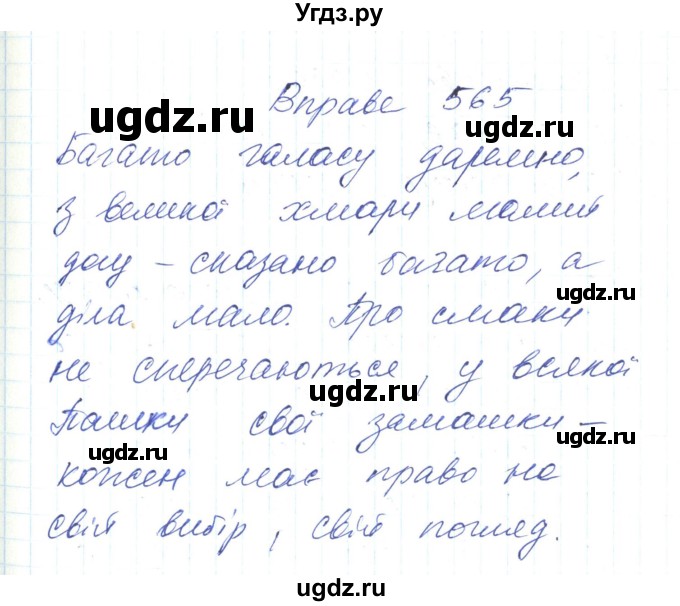 Угдз.ру
Вправа 565
ugdz.ru
Багато галасу даремно,
ugdz.ru
ugdz.ru
з великої хмари малий
дощ – сказано багато, а
ugdz.ru
ugdz.ru
діла мало. Про смаки
не сперечаються, у всякої
ugdz.ru
Пашки свої замашки –
ugdz.ru
ugdz.ru
кожен має право на
свій вибір, свій погляд.
ugdz.ru